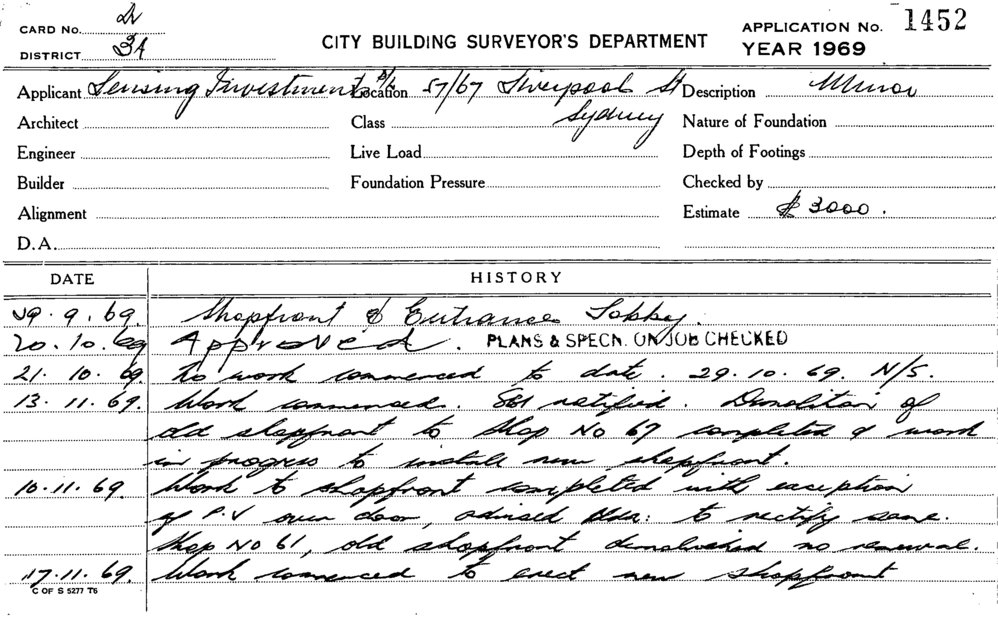 CARD No. 2
DISTRICT 3A
CITY BUILDING SURVEYOR'S DEPARTMENT
APPLICATION No. 1452
YEAR 1969
Applicant Sensing Investments P/L Location 57/67 Liverpool St Description Minor
Architect Class Sydney Nature of Foundation
Engineer Live Load Depth of Footings
Builder Foundation Pressure Checked by
Alignment Estimate $ 3000.
D.A.
DATE HISTORY
29.9.69. Shopfront & Entrance Lobby.
20.10.69 Approved. PLANS & SPECN. ON JOB CHECKED
21.10.69. No work commenced to date. 29.10.69. N/S.
13.11.69. Work commenced. notified. Demolition of
old shopfront to Shop No 67 completed & work
in progress to install new shopfront.
10.11.69. Work to shopfront completed with exception
of P.V over door, advised Bldr: to rectify same.
Shop No 61, old shopfront demolished no renewal.
17.11.69. Work commenced to erect new shopfront
C OF S 5277 T6